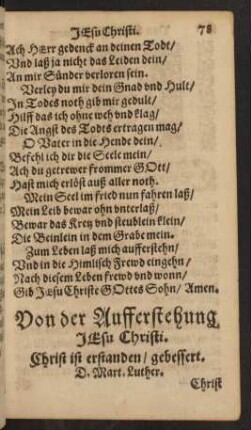 JEsu Christi. 78
Ach HErr gedenck an deinen Todt/
Vnd laß ja nicht das Leiden dein/
An mir Sünder verloren sein.
Verley du mir dein Gnad vnd Hult/
In Todes noth gib mir gedult/
Hilff das ich ohne weh vnd klag/
Die Angst des Todts ertragen mag/
O Vater in die Hende dein/
Befehl ich dir die Seele mein/
Ach du getrewer frommer GOtt/
Hast mich erlöst auß aller noth.
Mein Seel im fried nun fahren laß/
Mein Leib bewar ohn vnterlaß/
Bewar das Krey vnd steublein klein/
Die Beinlein in dem Grabe mein.
Zum Leben laß mich aufferstehn/
Vnd in die Himlisch Frewd eingehn/
Nach diesem Leben frewd vnd wonn/
Gib JEsu Christe GOttes Sohn/ Amen.
Von der Aufferstehung
JEsu Christi.
Christ ist erstanden/ gebessert.
D. Mart. Luther.
Christ